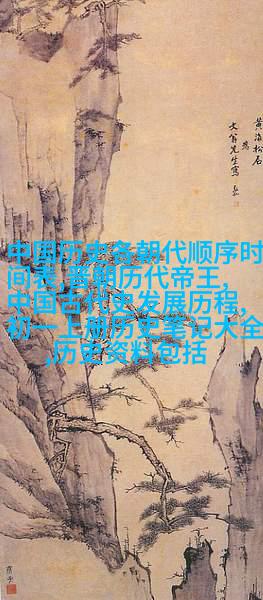 黄海松石
为
文翁先生写
中国历史各朝代顺序时
间表,晋朝历代帝王,
中国古代史发展历程,
初一上册历史笔记大全
,历史资料包括